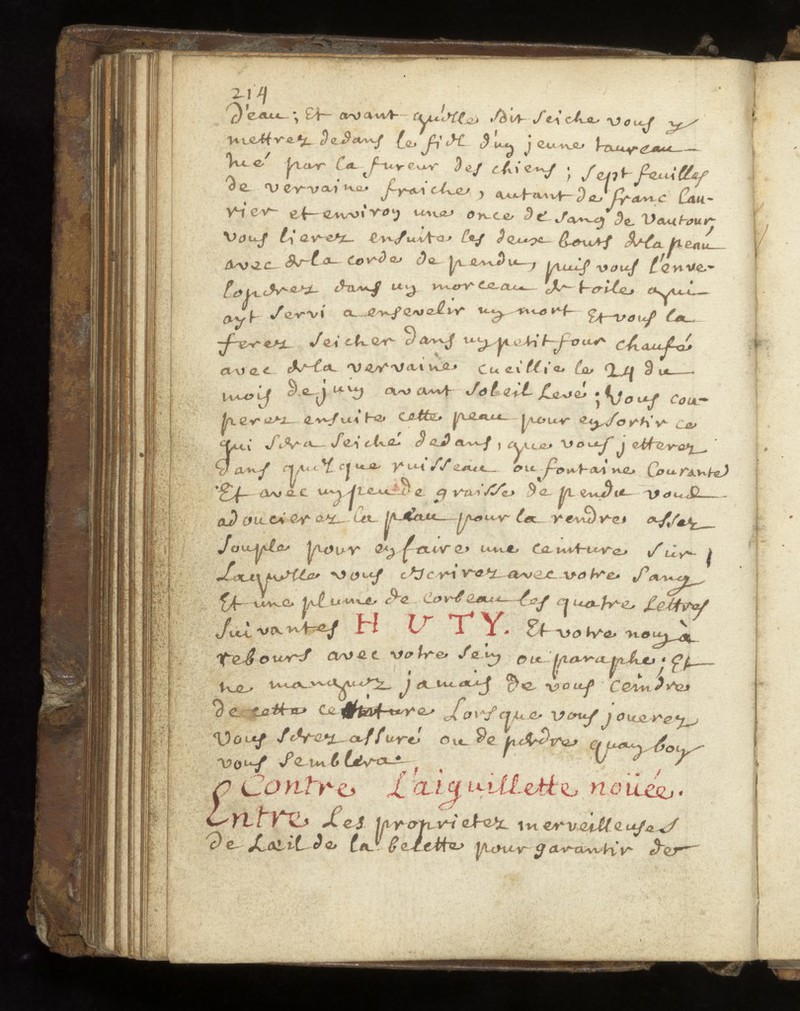 214
D'eau ; Et avant quelle soit seiche vous y
mettrez dedans le fiel d'un jeune taureau
tué par la fureur des chiens ; sept feuilles
de vervaine fraiche, autant de franc lau-
rier et environ une once de sang de Vautour
vous lierez ensuite les deux bouts de la peau
avec de la corde de pendu, puis vous l'enve-
lopderez dans un morceau de toile qui
ayt servi a ensevelir un mort Et vous la
ferez seicher dans un petit four chaufé
avec de la vervaine cueillie le 24 du
mois de juin avant soleil Levé ; Vous cou-
perez ensuite cette peau pour en sortir ce
qui sera seiché dedans, que vous jetterez
dans quelque ruisseau ou fontaine Courante
Et avec un peu de graisse de pendu vous
adoucierez la peau pour la rendre assez
souple pour en faire une ceinture sur
Laquelle vous escrirez avec votre sang
Et une plume de corbeau les quatre Lettres
suivantes H U T Y. Et votre nom à
rebours avec votre sein ou paraphe ; Et
ne manquez jamais de vous ceindre
de cette ceinture Lorsque vous jouerez
Vous serez assuré ou de perdre quan bon
vous semblera.
Contre L'aiguillette noüée.
Entre Les proprietez merveilleuses
de Lœil de la belette pour garantir de